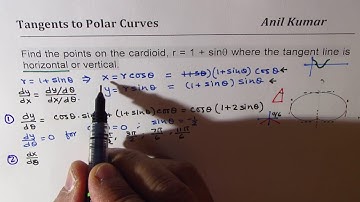 Tangents to Polar Curves
Anil Kumar
Find the points on the cardioid, r = 1 + sinθ where the tangent line is
horizontal or vertical.
r = 1+sinθ ⇒ x = r cosθ = (1+sinθ) cosθ ←
dy/dx = dy/dθ / dx/dθ y = r sinθ = (1+sinθ) sinθ ←
① dy/dθ = cosθ · sinθ (1+sinθ) cosθ = cosθ (1+2 sinθ)
dy/dθ = 0 for = 0 ; sinθ = -1/2
3π/2, 7π/6, 11π/6
② dx/dθ